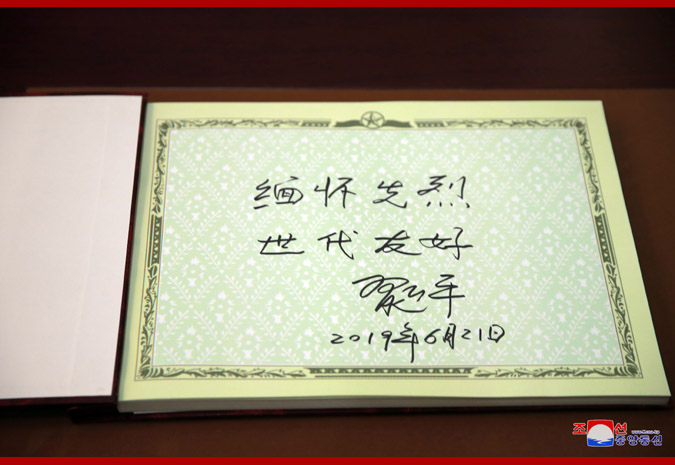 缅怀先烈
世代友好
习近平
2019年6月21日
조선
중앙통신